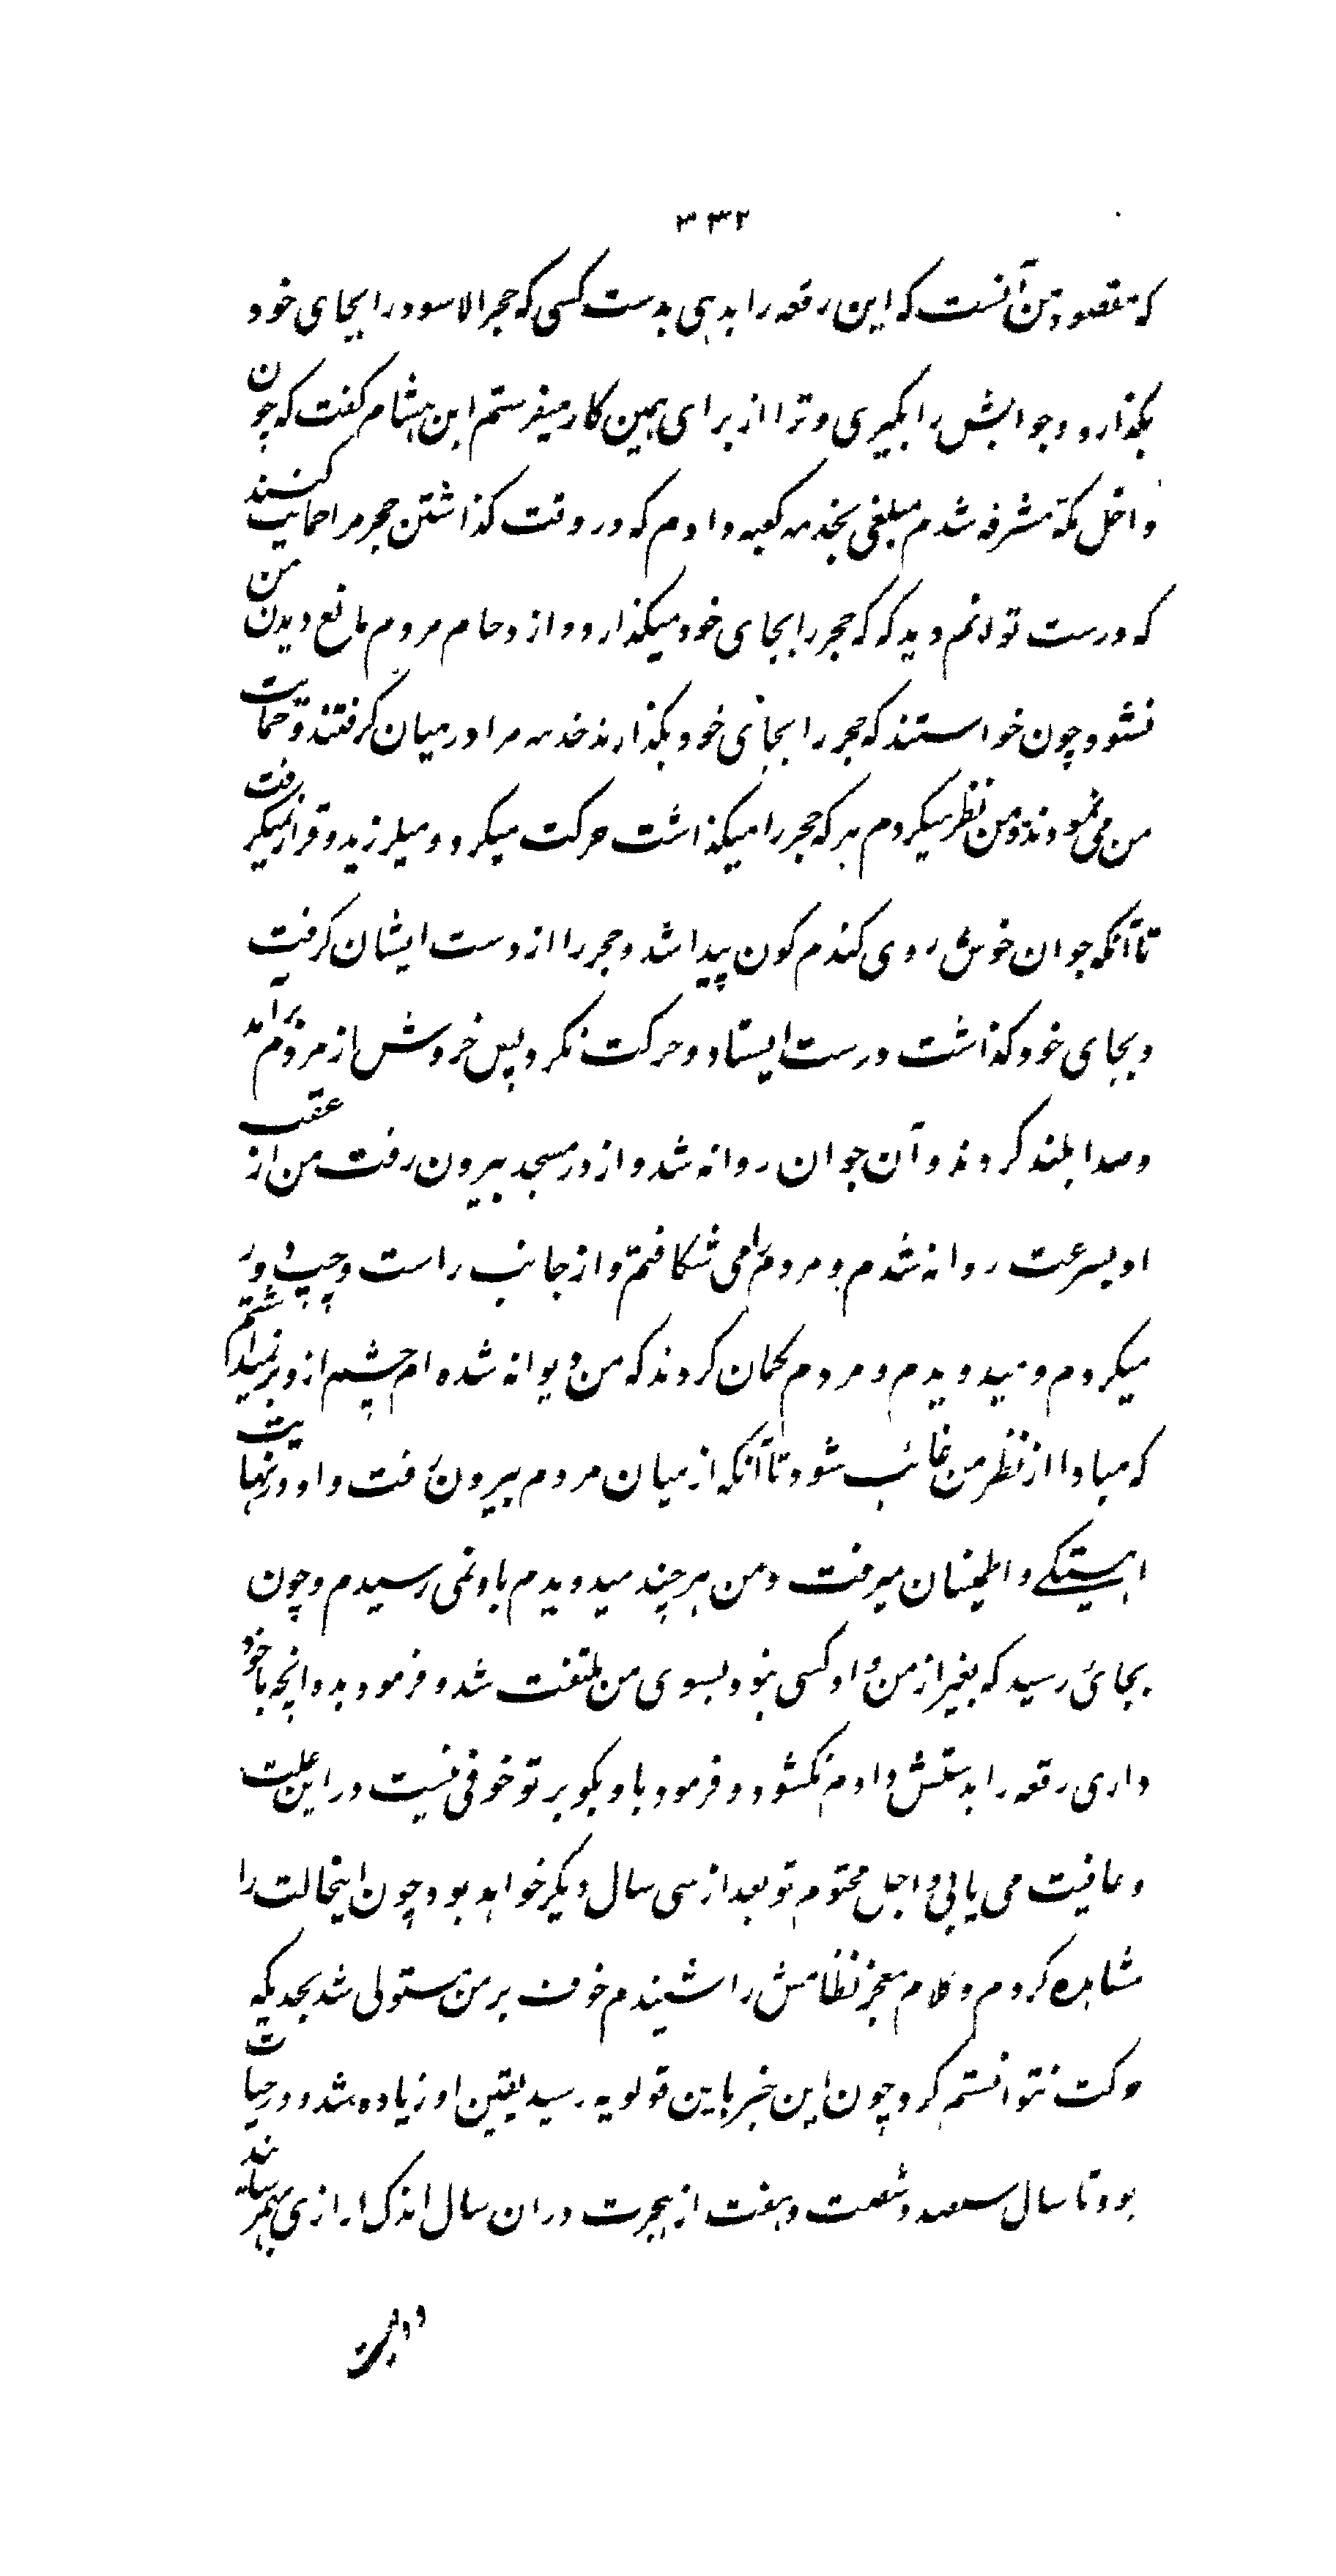 ۳۳۲
که مقصود من آنست که این رقعه را بدهی بدست کسی که حجر الاسود را بجای خود
بگذارد و جوابش را بگیری و ترا از برای همین کار میفرستم ابن هشام گفت که چون
داخل مکۀ مشرفه شدم مبلغی بخدمه کعبه دادم که در وقت گذاشتن حجر مرا حمایت کنند
که درست توانم دید که که حجر را بجای خود میگذارد و ازدحام مردم مانع دیدن من
نشود چون خواستند که حجر را بجای خود بگذارند خدمه مرا در میان گرفتند و حمایت
من می نمودند و من نظر میکردم هر که حجر را میگذاشت حرکت میکرد و میلرزید و قرار نمیگرفت
تا آنکه جوان خوش روی گندم گون پیدا شد و حجر را از دست ایشان گرفت
و بجای خود گذاشت درست ایستاد و حرکت نکرد پس خروش از مردم برآمد
و صدا بلند کردند و آن جوان روانه شد و از در مسجد بیرون رفت من از عقب
او بسرعت روانه شدم و مردم را می شکافتم و از جانب راست و چپ دور
میکردم و میدویدم و مردم گمان کردند که من دیوانه شده ام چشم از و بر نمیداشتم
که مبادا از نظر من غائب شود تا آنکه از میان مردم بیرون رفت و او در نهایت
اهستگی و اطمینان میرفت و من هر چند میدویدم باو نمی رسیدم و چون
بجائی رسید که بغیر از من و او کسی نبود بسوی من ملتفت شد و فرمود بده انچه با خود
داری رقعه را بدستش دادم نگشود و فرمود باو بگو بر تو خوفی نیست در این علت
و عافیت می یابی و اجل محتوم تو بعد از سی سال دیگر خواهد بود چون اینحالت را
مشاهده کردم و کلام معجز نظامش را شنیدم خوف بر من مستولی شد بحدیکه
حرکت نتوانستم کرد چون این خبر باین قولویه رسید یقین او زیاده شد و در حیات
بود تا سال سیصد و شصت و هفت از هجرت در ان سال اندک ازاری بهمرسانید